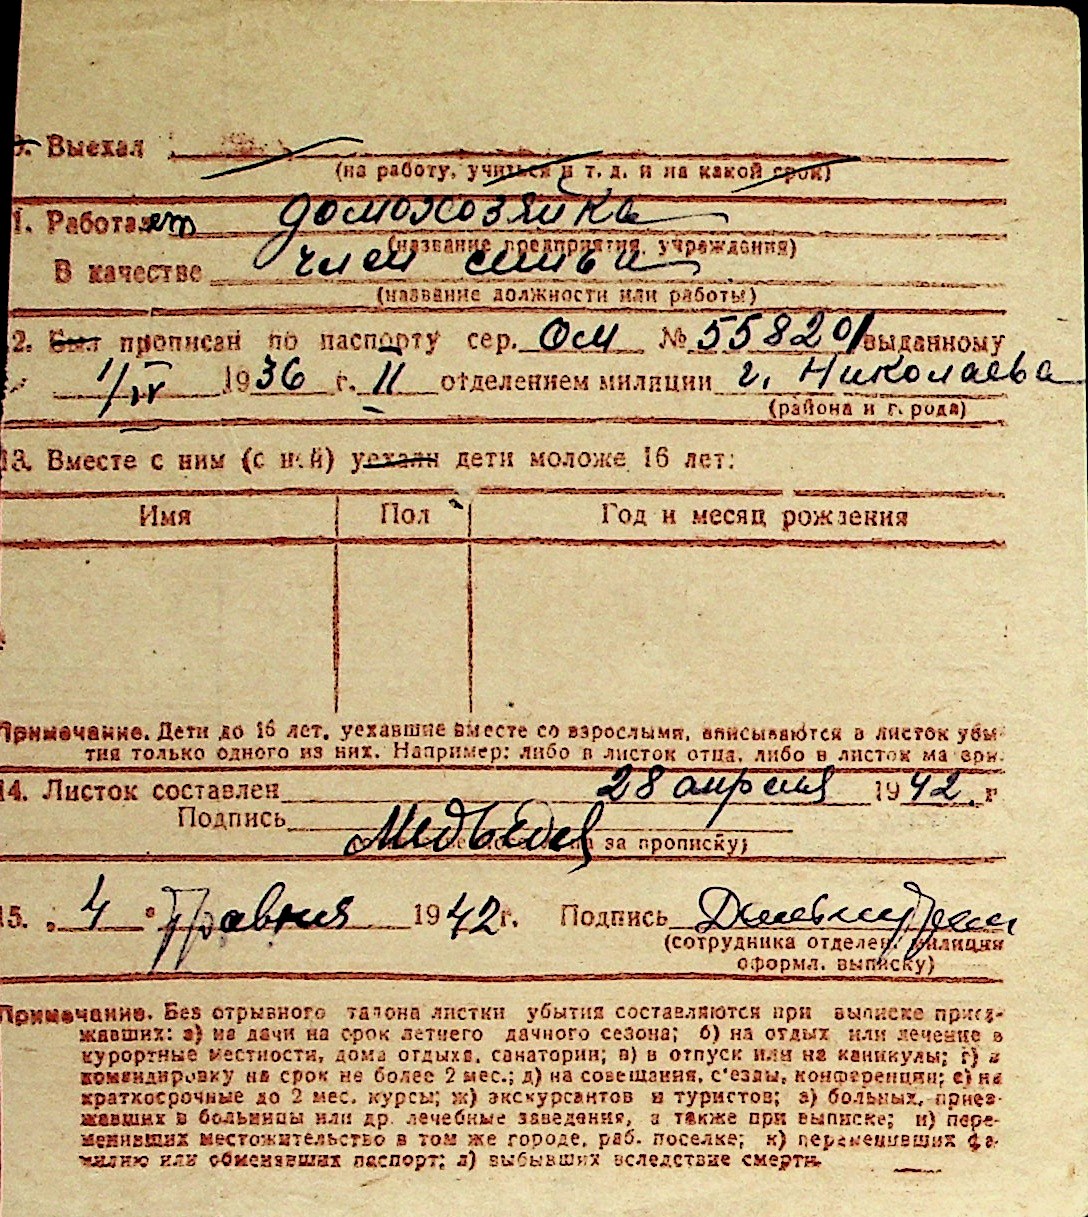 Выехал
(на работу, учиться и т. д. и на какой срок)
1. Работает домохозяйка
(название предприятия, учреждения)
В качестве член семьи
(название должности или работы)
2. Был прописан по паспорту сер. ОМ № 558201 выданному
1/IV 1936 г. II отделением милиции г. Николаева
(района и г. рода)
13. Вместе с ним (с ней) уехали дети моложе 16 лет:
Имя Пол Год и месяц рождения
Примечание. Дети до 16 лет, уехавшие вместе со взрослыми, вписываются в листок убы-
тия только одного из них. Например: либо в листок отца, либо в листок ма ери.
14. Листок составлен 28 апреля 1942 г
Подпись Медведев
за прописку)
15. 4 Травня 1942 г. Подпись
(сотрудника отделен. милиции
оформл. выписку)
Примечание. Без отрывного талона листки убытия составляются при выписке приез-
жавших: а) на дачи на срок летнего дачного сезона; б) на отдых или лечение в
курортные местности, дома отдыха, санатории; в) в отпуск или на каникулы; г) в
командировку на срок не более 2 мес.; д) на совещания, с'езды, конференции; е) на
краткосрочные до 2 мес. курсы; ж) экскурсантов и туристов; з) больных, приез-
жавших в больницы или др. лечебные заведения, а также при выписке; и) пере-
менивших местожительство в том же городе, раб. поселке; к) переменивших фа-
милию или обменявших паспорт; л) выбывших вследствие смерти.